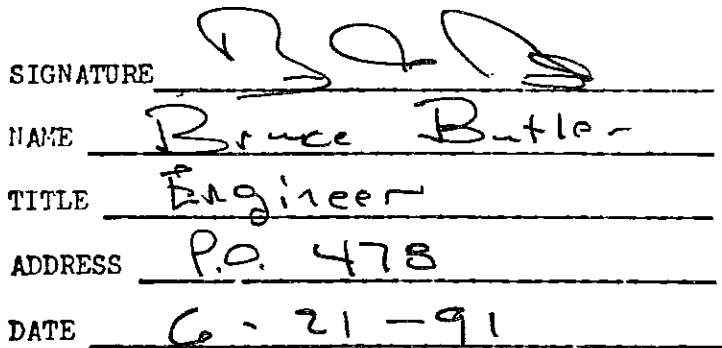 SIGNATURE
NAME Bruce Butler
TITLE Engineer
ADDRESS P.O. 478
DATE 6-21-91